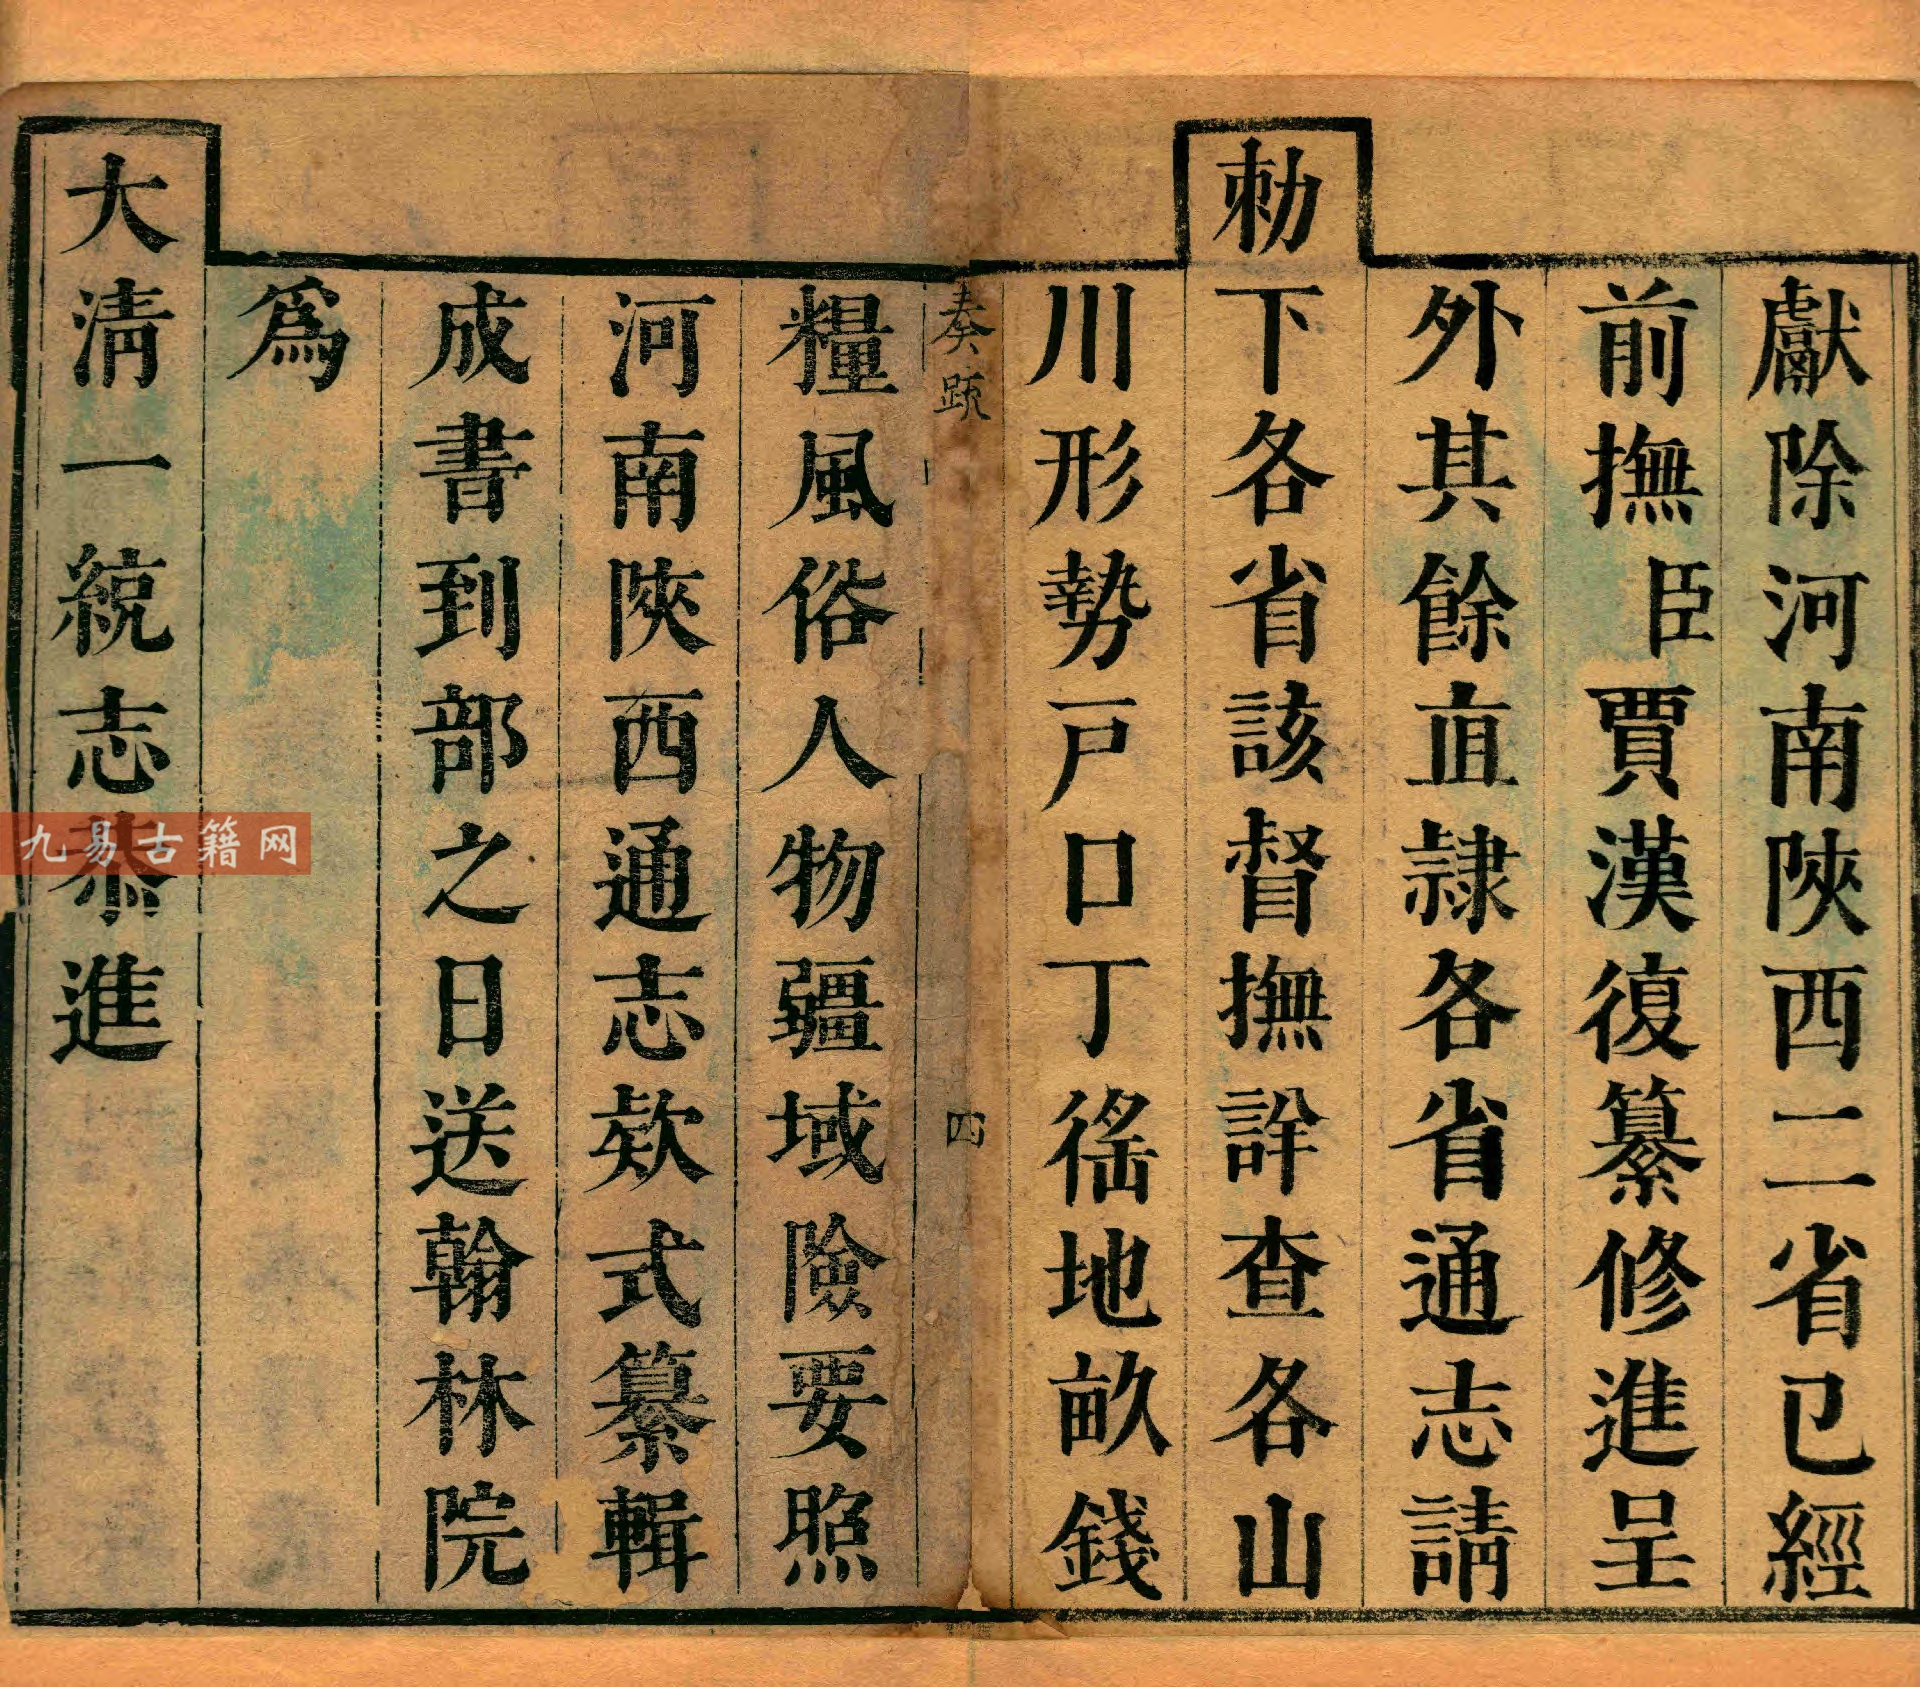 獻除河南陝西二省已經
前撫臣賈漢復纂修進呈
外其餘直隷各省通志請
勅下各省該督撫詳查各山
川形勢戸口丁徭地畝錢
奏䟽 四
糧風俗人物疆域險要照
河南陝西通志欵式纂輯
成書到部之日送翰林院
爲
大清一統志恭進
九易古籍网